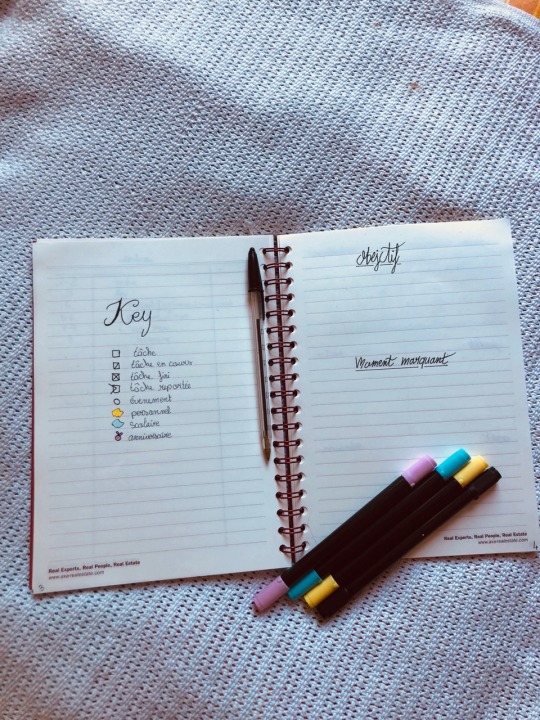 Key
tâche
tâche en cours
tâche fini
tâche reportée
évenement
personnel
scolaire
anniversaire
Real Experts, Real People, Real Estate
www.aserealestate.com
3
Objectif
Moment marquant
Real Experts, Real People, Real Estate
www.aserealestate.com
4